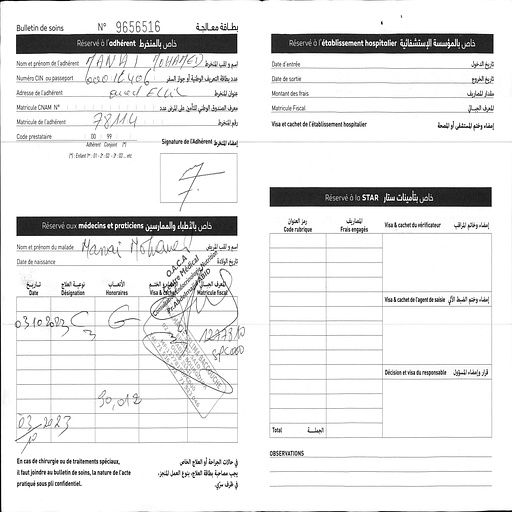 Bulletin de soins N° 9656516 بطاقة معالجة
Réservé à l'adhérent خاص بالمنخرط
Nom et prénom de l'adhérent MANAI MOHAMED اسم و لقب المنخرط
Numéro CIN ou passeport عدد بطاقة التعريف الوطنية أو جواز السفر
Adresse de l'adhérent عنوان المنخرط
Matricule CNAM N° معرف الصندوق الوطني للتأمين على المرض عدد
Matricule de l'adhérent 78114 رقم المنخرط
Code prestataire 00 99
Adhérent Conjoint (*)
(*) : Enfant 1er : 01 - 2 : 02 - 3 : 03 ... etc
Signature de l'Adhérent إمضاء المنخرط
Réservé aux médecins et praticiens خاص بالأطباء والممارسين
Nom et prénom du malade Manai Mohamed اسم و لقب المريض
Date de naissance تاريخ الولادة
تاريخ نوعية العلاج الأتعاب
Date Désignation Honoraires Visa & Matricule fiscal
O.A.C.A
Centre Médical
03 10 2023 C3 G
1277310
30,012
03/10/2023
En cas de chirurgie ou de traitements spéciaux,
il faut joindre au bulletin de soins, la nature de l'acte
pratiqué sous pli confidentiel.
في حالات الجراحة أو العلاج الخاص
يجب مصاحبة بطاقة العلاج، بنوع العمل المنجز،
في ظرف سري.
Réservé à l'établissement hospitalier خاص بالمؤسسة الإستشفائية
Date d'entrée تاريخ الدخول
Date de sortie تاريخ الخروج
Montant des frais مقدار المصاريف
Matricule Fiscal المعرف الجبائي
Visa et cachet de l'établissement hospitalier إمضاء وختم المستشفى أو المصحة
Réservé à la STAR خاص بتأمينات ستار
رمز العنوان المصاريف
Code rubrique Frais engagés
Visa & cachet du vérificateur إمضاء وخاتم المراقب
Visa & cachet de l'agent de saisie
Décision et visa du responsable قرار وإمضاء المسؤول
Total الجملة
OBSERVATIONS